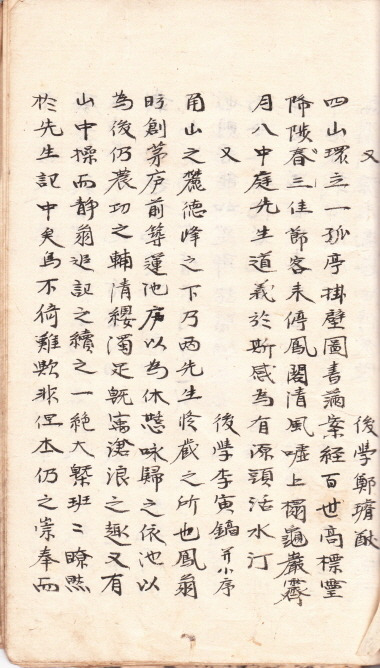 又
後學鄭瓚畝
四山環立一孤亭掛壁圖書滿案經百世高標靈
降陟春三佳節客來停鳳閣清風噓上榻龜巖霽
月入中庭先生道義於斯感爲有源頭活水汀
又
後學李寅鎬并小序
甬山之麓德峰之下乃西先生修藏之所也鳳翁
昉創茅庐前篿蓮池庐以為休憩咏歸之依池以
為後仍農功之輔淸纓濁足旣寓滄浪之趣又有
山中操而靜翁追記之續之一絶大槩班〻瞭然
於先生記中矣烏不倚難歟非但本仍之崇奉而